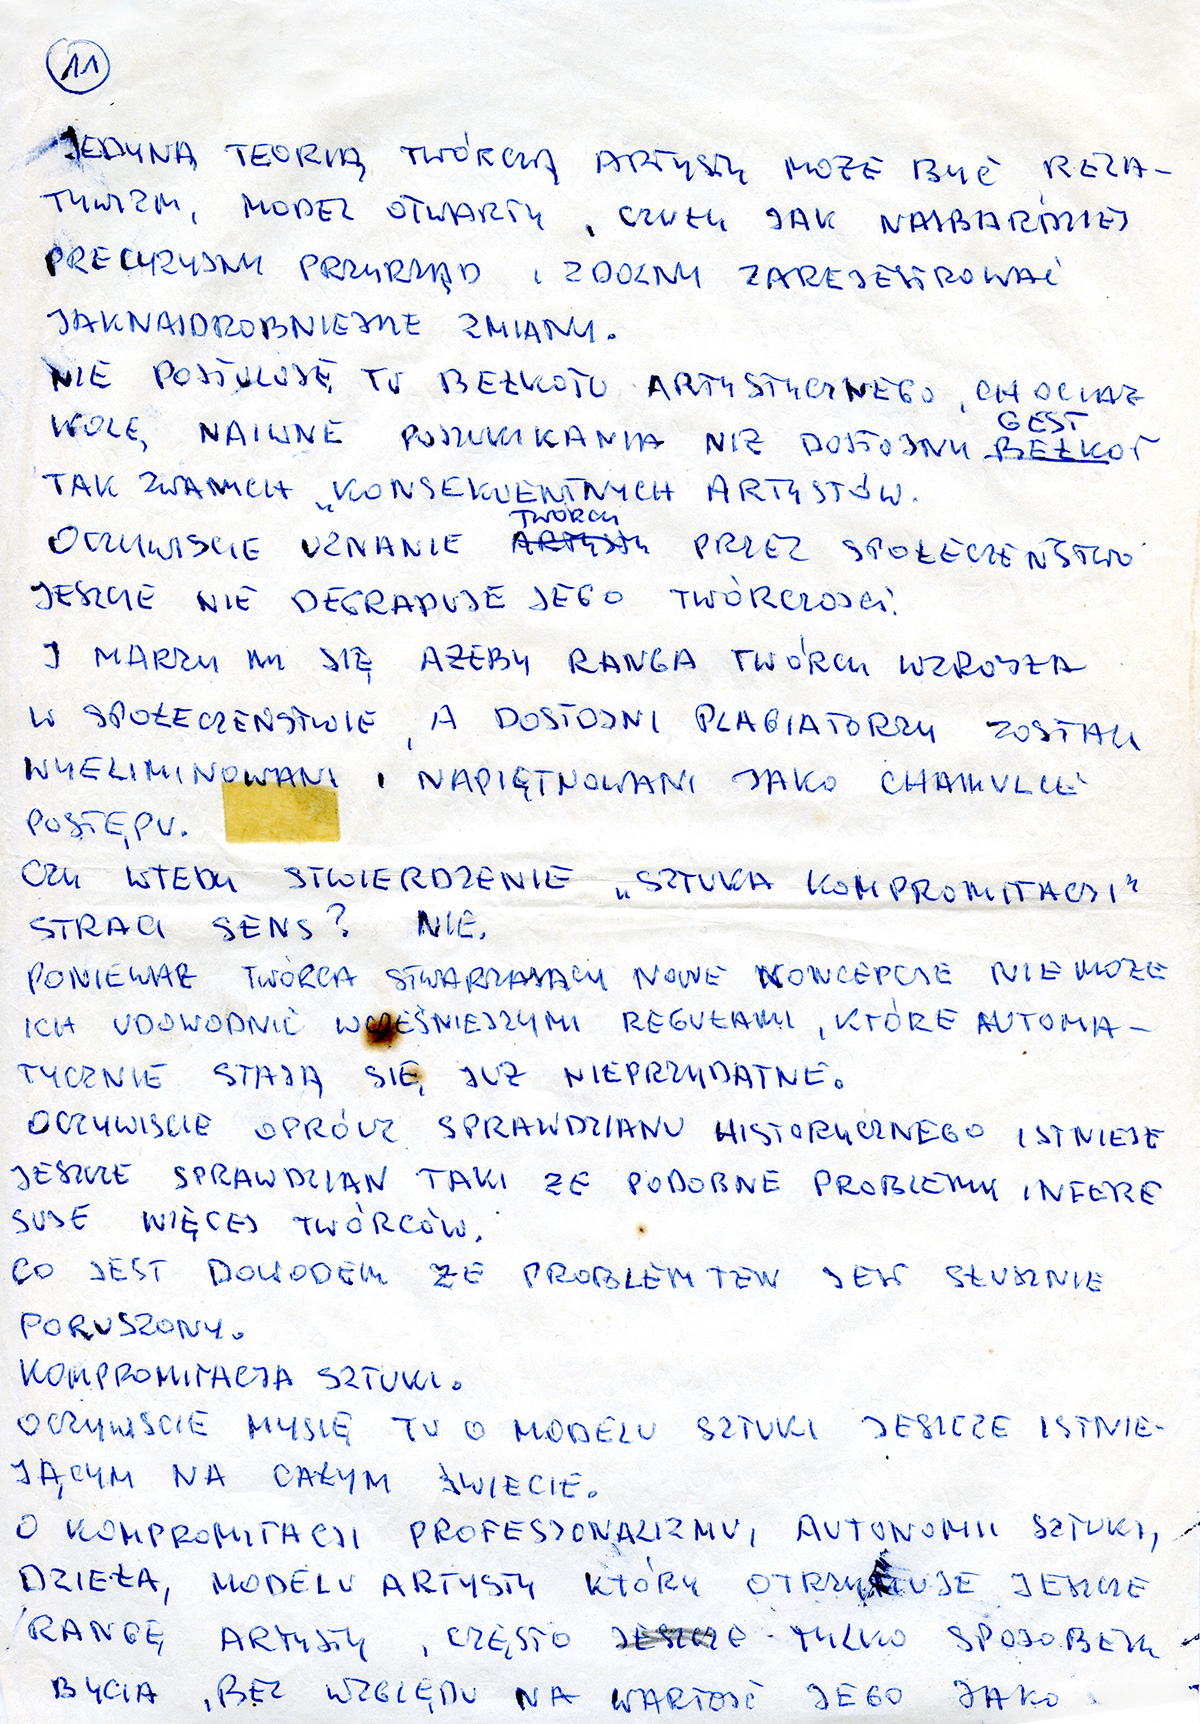 11
JEDYNĄ TEORIĄ TWÓRCZĄ ARTYSTY MOŻE BYĆ RELA-
TYWIZM, MODEL OTWARTY, CZUŁY JAK NAJBARDZIEJ
PRECYZYJNY PRZYRZĄD I ZDOLNY ZAREJESTROWAĆ
JAKNAJDROBNIEJSZE ZMIANY.
NIE POSTULUJĘ TU BEŁKOTU ARTYSTYCZNEGO, CHOCIAŻ
GEST
WOLĘ NAIWNE POSZUKIKANIA NIŻ DOSTOJNY BEŁKOT
TAK ZWANYCH „KONSEKWENTNYCH ARTYSTÓW.
TWÓRCY
OCZYWIŚCIE UZNANIE ARTYSTY PRZEZ SPOŁECZEŃSTWO
JESZCZE NIE DEGRADUJE JEGO TWÓRCZOŚCI.
I MARZY MI SIĘ AŻEBY RANGA TWÓRCY WZROSŁA
W SPOŁECZEŃSTWIE, A DOSTOJNI PLAGIATORZY ZOSTALI
WYELIMINOWANI I NAPIĘTNOWANI JAKO CHAMULCE
POSTĘPU.
CZY WTEDY STWIERDZENIE „SZTUKA KOMPROMITACJI"
STRACI SENS? NIE.
PONIEWAŻ TWÓRCA STWARZAJĄCY NOWE KONCEPCJE NIE MOŻE
ICH UDOWODNIĆ WCZEŚNIEJSZYMI REGUŁAMI, KTÓRE AUTOMA-
TYCZNIE STAJĄ SIĘ JUŻ NIEPRZYDATNE.
OCZYWIŚCIE OPRÓCZ SPRAWDZIANU HISTORYCZNEGO ISTNIEJE
JESZCZE SPRAWDZIAN TAKI ŻE PODOBNE PROBLEMY INTERE
SUJE WIĘCEJ TWÓRCÓW.
CO JEST DOWODEM ŻE PROBLEM TEN JEST SŁUSZNIE
PORUSZONY.
KOMPROMITACJA SZTUKI.
OCZYWIŚCIE MYŚLĘ TU O MODELU SZTUKI JESZCZE ISTNIE-
JĄCYM NA CAŁYM ŚWIECIE.
O KOMPROMITACJI PROFESJONALIZMU, AUTONOMII SZTUKI,
DZIEŁA, MODELU ARTYSTY KTÓRY OTRZYMUJE JESZCZE
RANGĘ ARTYSTY, CZĘSTO JESZCZE TYLKO SPOSOBEM
BYCIA, BEZ WZGLĘDU NA WARTOŚĆ JEGO JAKO